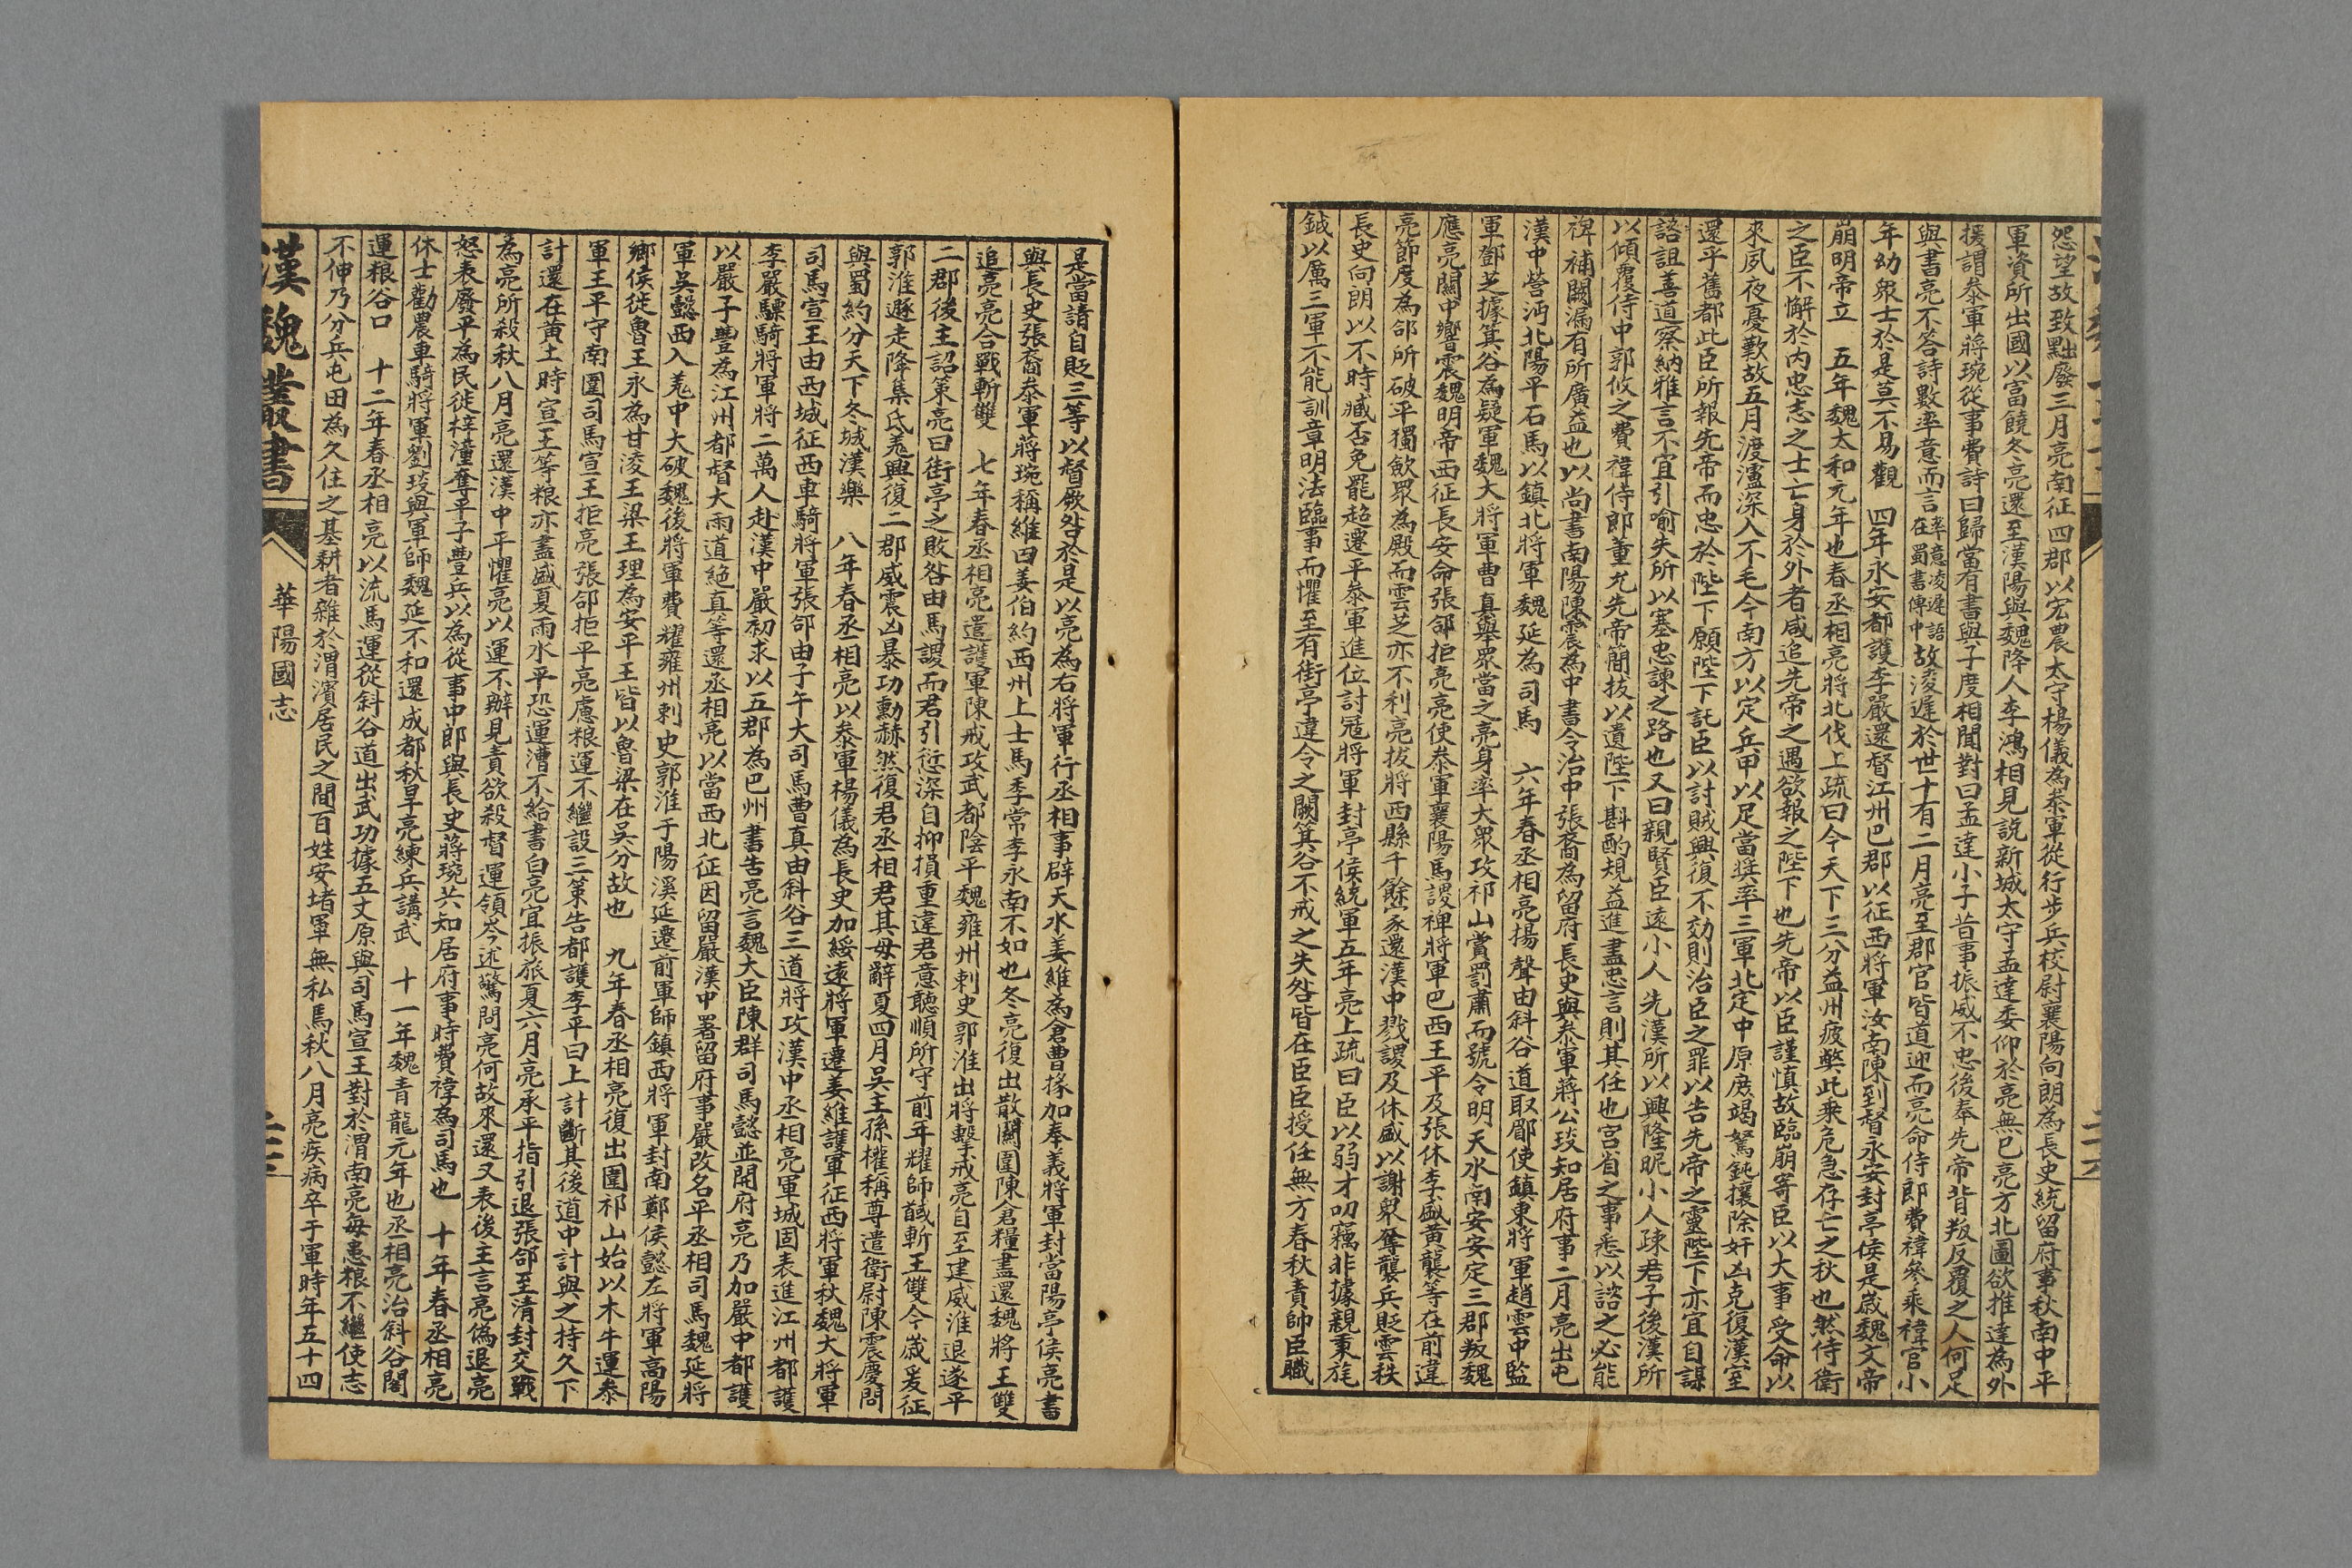 怨望故致黜廢三月亮南征四郡以宏農太守楊儀為叅軍從行步兵校尉襄陽向朗為長史統留府事秋南中平
軍資所出國以富饒冬亮還至漢陽與魏降人李鴻相見說新城太守孟達委仰於亮無已亮方北圖欲推達為外
援謂叅軍蔣琬從事費詩曰歸當有書與子度相聞對曰孟達小子昔事振威不忠後奉先帝背叛反覆之人何足
與書亮不答詩數率意而言率意凌遲語在蜀書傳中故淩遲於世十有二月亮至郡官皆道迎而亮命侍郎費禕參乘禕官小
年幼眾士於是莫不易觀　四年永安都護李嚴還督江州巴郡以征西將軍汝南陳到督永安封亭侯是歲魏文帝
崩明帝立　五年魏太和元年也春丞相亮將北伐上疏曰今天下三分益州疲獘此乗危急存亡之秋也然侍衛
之臣不懈於內忠志之士亡身於外者咸追先帝之遇欲報之陛下也先帝以臣謹慎故臨崩寄臣以大事受命以
來夙夜憂歎故五月渡瀘深入不毛今南方以定兵甲以足當奬率三軍北定中原庶竭駑鈍攘除奸凶克復漢室
還乎舊都此臣所報先帝而忠於陛下願陛下託臣以討賊興復不効則治臣之罪以告先帝之靈陛下亦宜自謀
諮詛善道察納雅言不宜引喻失所以塞忠諫之路也又曰親賢臣遠小人先漢所以興隆昵小人疎君子後漢所
以傾覆侍中郭攸之費禕侍郎董允先帝簡拔以遺陛下斟酌規益進盡忠言則其任也宮省之事悉以諮之必能
禆補闕漏有所廣益也以尚書南陽陳震為中書令治中張裔為留府長史與叅軍蔣公琰知居府事二月亮出屯
漢中營沔北陽平石馬以鎮北將軍魏延為司馬　六年春丞相亮揚聲由斜谷道取郿使鎮東將軍趙雲中監
軍鄧芝據箕谷為疑軍魏大將軍曹真舉眾當之亮身率大眾攻祁山賞罰肅而號令明天水南安安定三郡叛魏
應亮關中響震魏明帝西征長安命張郃拒亮亮使叅軍襄陽馬謖裨將軍巴西王平及張休李盛黃襲等在前違
亮節度為郃所破平獨歛眾為殿而雲芝亦不利亮拔將西縣千餘家還漢中戮謖及休盛以謝眾奪襲兵貶雲秩
長史向朗以不時臧否免罷超遷平叅軍進位討冦將軍封亭侯統軍五年亮上疏曰臣以弱才叨竊非據親秉旄
鉞以厲三軍不能訓章明法臨事而懼至有街亭違令之闕箕谷不戒之失咎皆在臣臣授任無方春秋責帥臣職
是當請自貶三等以督厥咎於是以亮為右將軍行丞相事辟天水姜維為倉曹掾加奉義將軍封當陽亭侯亮書
與長史張裔叅軍蔣琬稱維曰姜伯約西州上士馬季常李永南不如也冬亮復出散關圍陳倉糧盡還魏將王雙
追亮亮合戰斬雙　七年春丞相亮遣護軍陳戒攻武都陰平魏雍州刺史郭淮出將擊戒亮自至建威淮退遂平
二郡後主詔策亮曰街亭之敗咎由馬謖而君引愆深自抑損重違君意聽順所守前年耀師馘斬王雙今歲爰征
郭淮遯走降集氐羗興復二郡威震凶暴功勳赫然復君丞相君其毋辭夏四月吳主孫權稱尊遣衛尉陳震慶問
與蜀約分天下冬城漢樂　八年春丞相亮以叅軍楊儀為長史加綏遠將軍遷姜維護軍征西將軍秋魏大將軍
司馬宣王由西城征西車騎將軍張郃由子午大司馬曹真由斜谷三道將攻漢中丞相亮軍城固表進江州都護
李嚴驃騎將軍將二萬人赴漢中嚴初求以五郡為巴州書告亮言魏大臣陳群司馬懿並開府亮乃加嚴中都護
以嚴子豐為江州都督大雨道絕真等還丞相亮以當西北征因留嚴漢中署留府事嚴改名平丞相司馬魏延將
軍吳懿西入羗中大破魏後將軍費耀雍州刺史郭淮于陽溪延遷前軍師鎮西將軍封南鄭侯懿左將軍高陽
鄉侯徙魯王永為甘淩王梁王理為安平王皆以魯梁在吳分故也　九年春丞相亮復出圍祁山始以木牛運叅
軍王平守南圍司馬宣王拒亮張郃拒平亮慮粮運不繼設三策告都護李平曰上計斷其後道中計與之持久下
計還在黃土時宣王等粮亦盡盛夏雨水平恐運漕不給書白亮宜振旅夏六月亮承平指引退張郃至清封交戰
為亮所殺秋八月亮還漢中平懼亮以運不辦見責欲殺督運領岑述驚問亮何故來還又表後主言亮偽退亮
怒表廢平為民徙梓潼奪平子豐兵以為從事中郎與長史蔣琬共知居府事時費禕為司馬也　十年春丞相亮
休士勸農車騎將軍劉琰與軍師魏延不和還成都秋旱亮練兵講武　十一年魏青龍元年也丞相亮治斜谷閣
運粮谷口　十二年春丞相亮以流馬運從斜谷道出武功據五丈原與司馬宣王對於渭南亮每患粮不繼使志
不伸乃分兵屯田為久住之基耕者雜於渭濱居民之間百姓安堵軍無私馬秋八月亮疾病卒于軍時年五十四
漢魏叢書　華陽國志